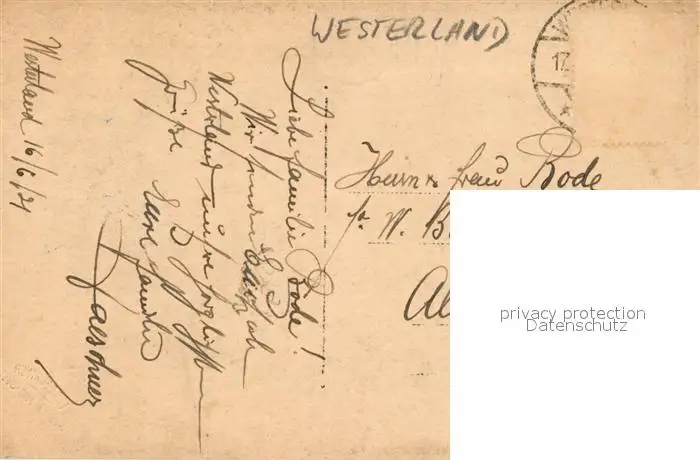 WESTERLAND
17.
Westerland 16/6/21
Liebe Familie Bode!
Wir senden Euch
Westerland unsere herzlichsten
Grüße
Eure Familie
Herrn u. Frau Bode
W. B
Al
privacy protection
Datenschutz